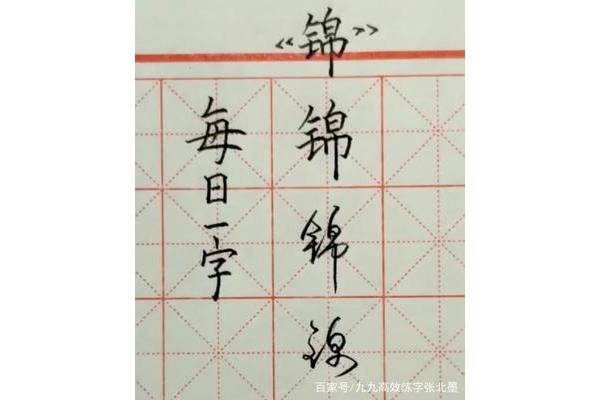 《锦》
每日一字
锦
锦
锦
百家号/九九高效练字张北墨